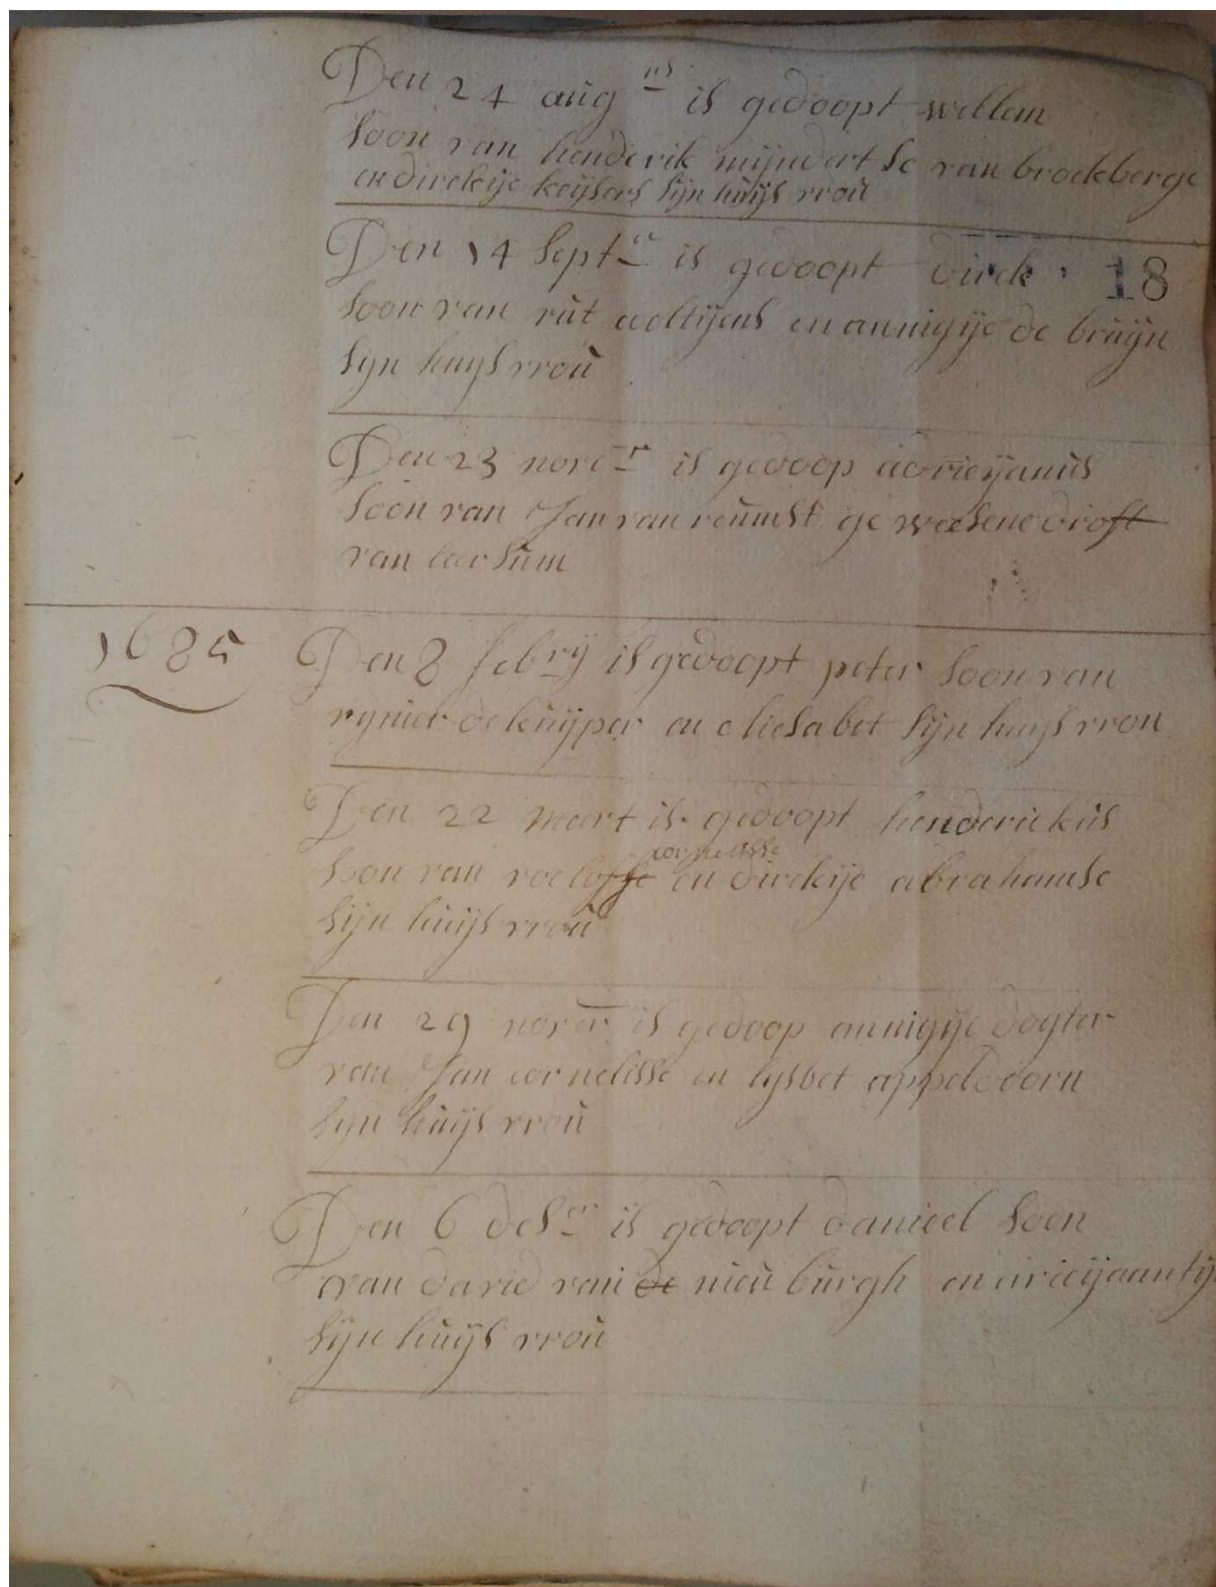 Den 24 aug us is gedoopt willem
soon van henderik mijndertse van broekberge
en dirckije keijsers sijn huijs vrou
Den 14 septer is gedoopt dirck 18
soon van rut woltijens en annigije de bruijn
syn huijs vrou
Den 23 nove r is gedoop adrieijanus
soon van Jan van reumst ge weesene droft
van leersum
1685 Den 8 febrij is gedoopt peter soon van
rynier de kuijper en eliesabet sijn huijs vrou
Den 22 meert is gedoopt henderickus
cornelisse
soon van roeloffse en dirckije abrahamse
sijn huijs vrou
Den 29 nover is gedoop annigije dogter
van Jan cornelisse en lysbet appeldoorn
syn huijs vrou
Den 6 deser is gedoopt danieel soon
van david van de nieu burgh en
sijn huijs vrou